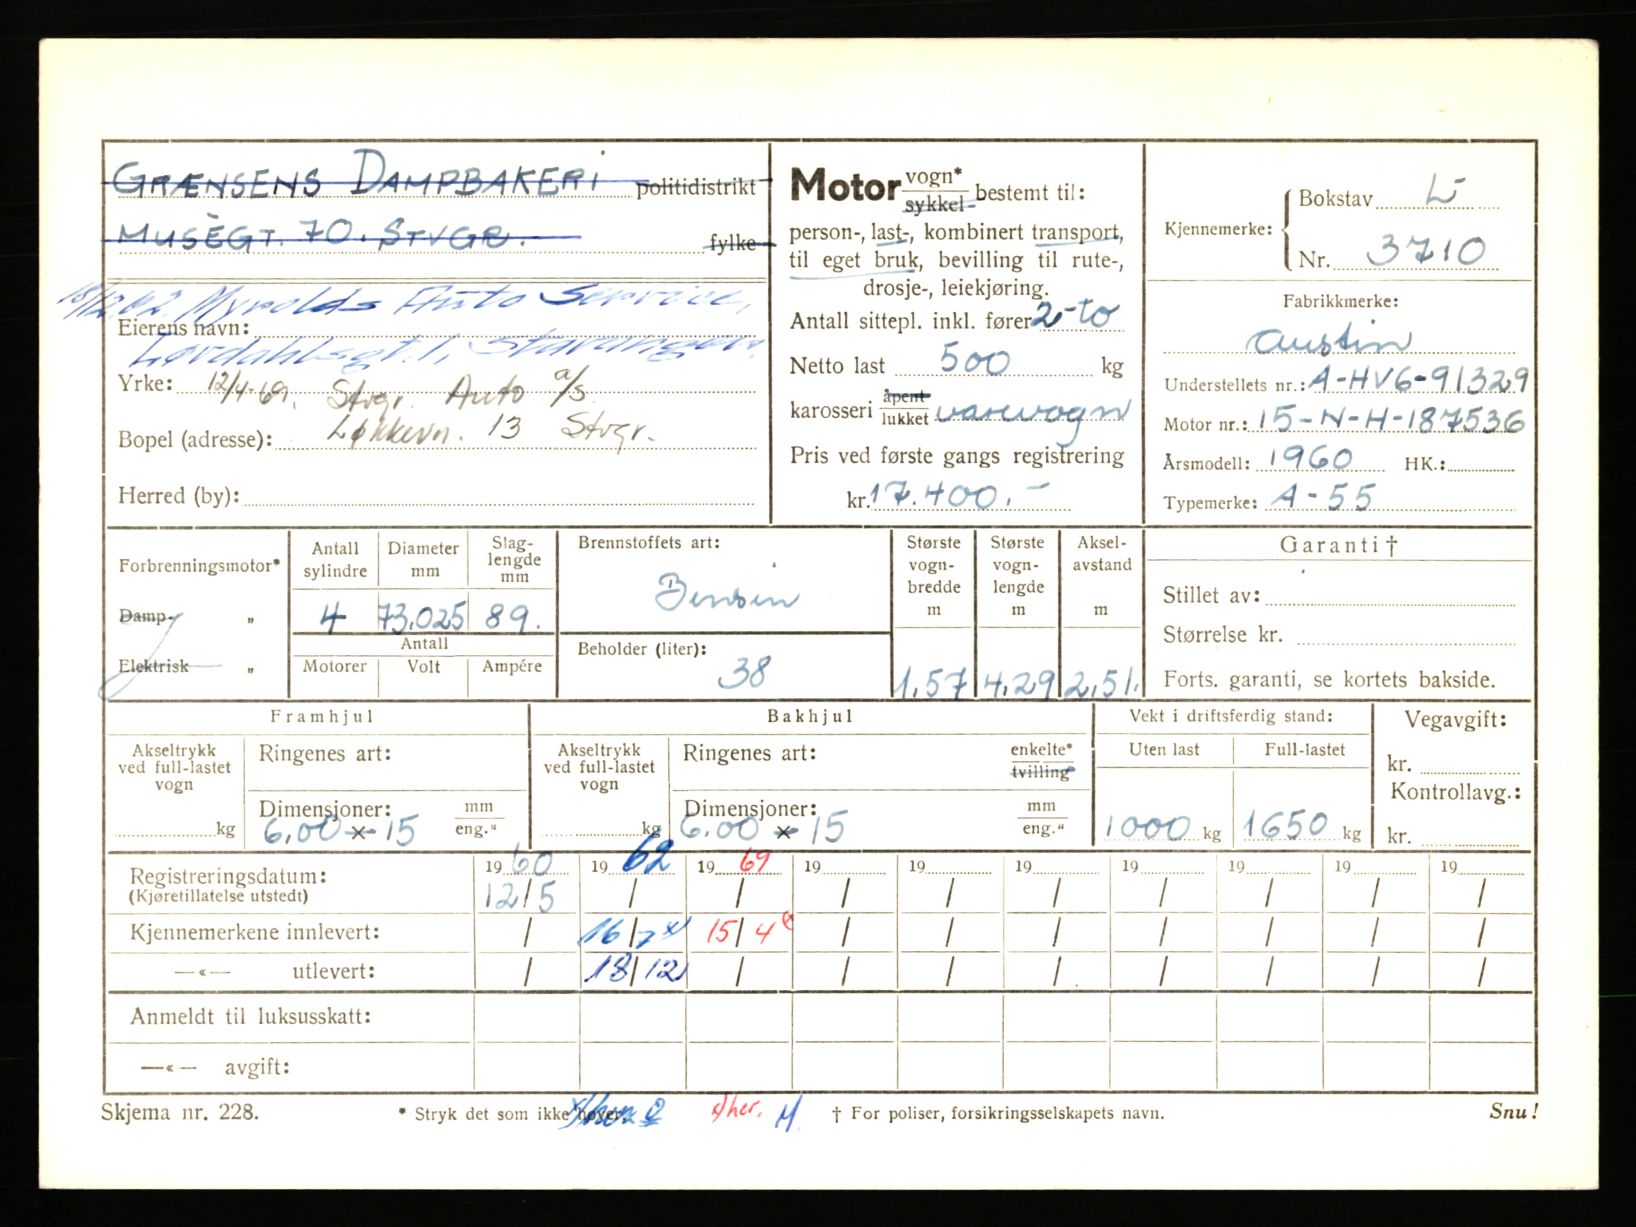 GRÆNSENS DAMPBAKERI politidistrikt
MUSÈGT. 70. STVGR. fylke
18/12.62 Myrolds Auto Service,
Eierens navn:
Løvdahlsgt. 1, Stavanger.
Yrke: 12/4-69. Stvgr. Auto a/s
Bopel (adresse): Løkkevn. 13 Stvgr.
Herred (by):
Motor vogn* sykkel bestemt til:
person-, last-, kombinert transport,
til eget bruk, bevilling til rute-,
drosje-, leiekjøring.
Antall sittepl. inkl. fører 2-to
Netto last 500 kg
karosseri åpent lukket varevogn
Pris ved første gangs registrering
kr. 17.400.-
Kjennemerke: Bokstav L
Nr. 3710
Fabrikkmerke:
Austin
Understellets nr.: A-HV6-91329
Motor nr.: 15-N-H-187536
Årsmodell: 1960 HK.:
Typemerke: A-55
Forbrenningsmotor*
Damp- „
Elektrisk „
Antall sylindre Diameter mm Slaglengde mm
4 73.025 89.
Antall
Motorer Volt Ampére
Brennstoffets art:
Bensin
Beholder (liter):
38
Største vogn-bredde m
1.57
Største vogn-lengde m
4.29
Aksel-avstand m
2.51.
Garanti †
Stillet av:
Størrelse kr.
Forts. garanti, se kortets bakside.
Framhjul
Akseltrykk ved full-lastet vogn
kg
Ringenes art:
Dimensjoner: mm eng."
6.00 x 15
Bakhjul
Akseltrykk ved full-lastet vogn
kg
Ringenes art: enkelte* tvilling
Dimensjoner: mm eng."
6.00 x 15
Vekt i driftsferdig stand:
Uten last Full-lastet
1000 kg 1650 kg
Vegavgift:
kr.
Kontrollavg.:
kr.
Registreringsdatum: 1960 1962 1969 19 19 19 19 19 19 19
(Kjøretillatelse utstedt) 12/5 / / / / / / / / /
Kjennemerkene innlevert: / 16/7 x) 15/4 x / / / / / / /
—«— utlevert: / 18/12 / / / / / / / /
Anmeldt til luksusskatt:
—«— avgift:
Skjema nr. 228. * Stryk det som ikke høver. x) her. M. † For poliser, forsikringsselskapets navn. Snu!